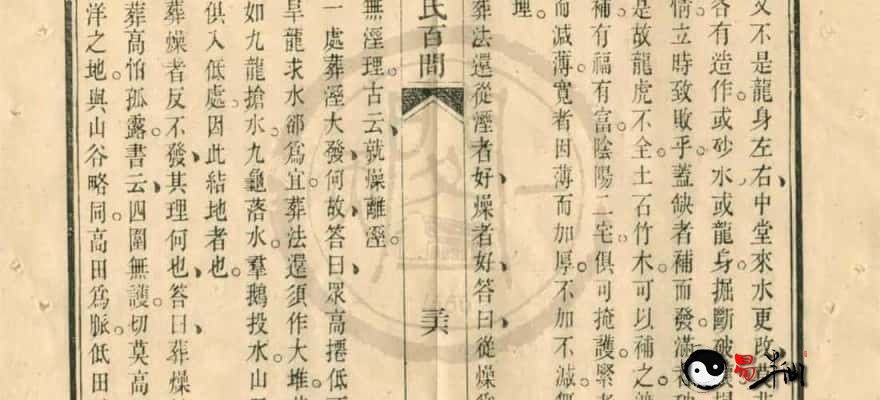 又不是龍身左右中堂來水更改
各有造作或砂水或龍身掘斷破
情立時致敗乎蓋缺者補而發滿
是故龍虎不全土石竹木可以補之
補有福有富陰陽二宅俱可掩護緊者
而減薄寬者因薄而加厚不加不減
理
葬法還從溼者好燥者好答曰從燥
氏百問
無溼理古云就燥離溼
一處葬溼大發何故答曰眾高捲低
旱龍求水卻爲宜葬法還須作大堆
如九龍搶水九龜落水羣鵝投水山
俱入低處因此結地者也
葬燥者反不發其理何也答曰葬燥
葬高怕孤露書云四圍無護切莫高
洋之地與山谷略同高田爲脈低田
易